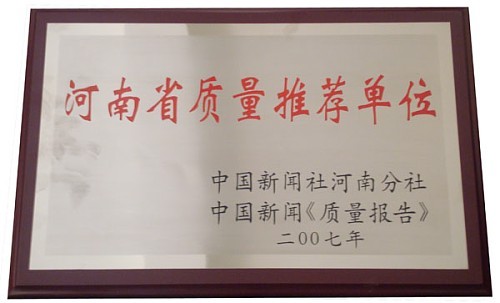 河南省质量推荐单位
中国新闻社河南分社
中国新闻《质量报告》
二00七年